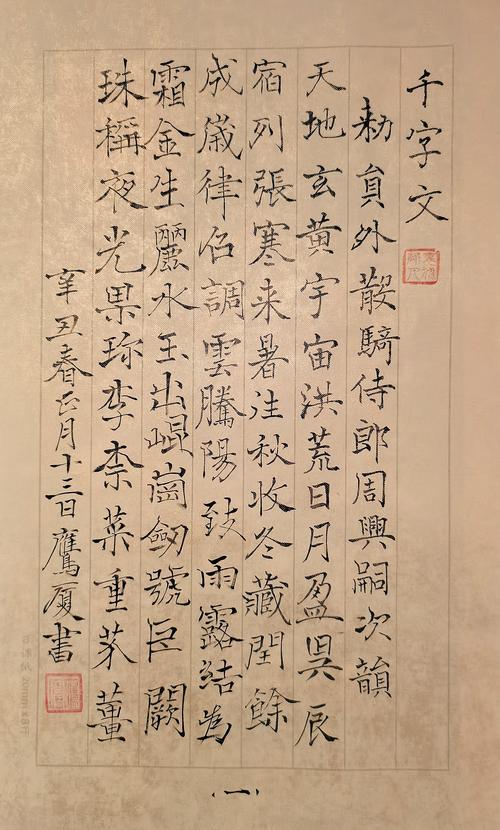 千字文
勑員外散騎侍郎周興嗣次韻
天地玄黃宇宙洪荒日月盈昃辰
宿列張寒来暑往秋收冬藏閏餘
成歲律召調雲騰陽致雨露結為
霜金生麗水玉出崐崗劒號巨闕
珠稱夜光果珎李柰菜重芥薑
辛丑春正月十三日鷹廈書
(一)